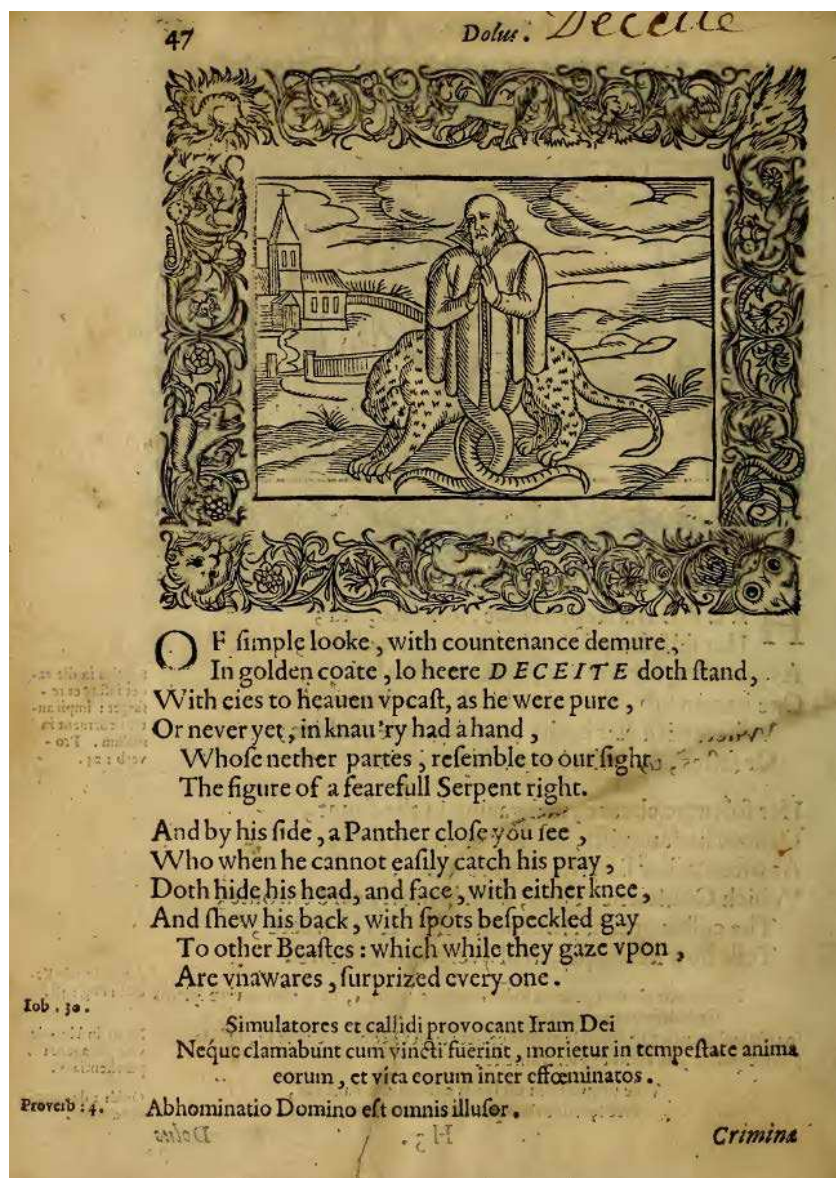 47
Dolus.
Deceite
OF ſimple looke, with countenance demure,
In golden coate, lo heere DECEITE doth ſtand,
With eies to heauen vpcaſt, as he were pure,
Or never yet, in knau'ry had a hand,
Whoſe nether partes, reſemble to our ſight,
The figure of a fearefull Serpent right.
And by his ſide, a Panther cloſe you ſee,
Who when he cannot eaſily catch his pray,
Doth hide his head, and face, with either knee,
And ſhew his back, with ſpots beſpeckled gay
To other Beaſtes: which while they gaze vpon,
Are vnawares, ſurprized every one.
Iob. 30.
Simulatores et callidi provocant Iram Dei
Neque clamabunt cum vincti fuerint, morietur in tempeſtate anima
eorum, et vita eorum inter effœminatos.
Proverb: 4.
Abhominatio Domino eſt omnis illuſor.
Crimina